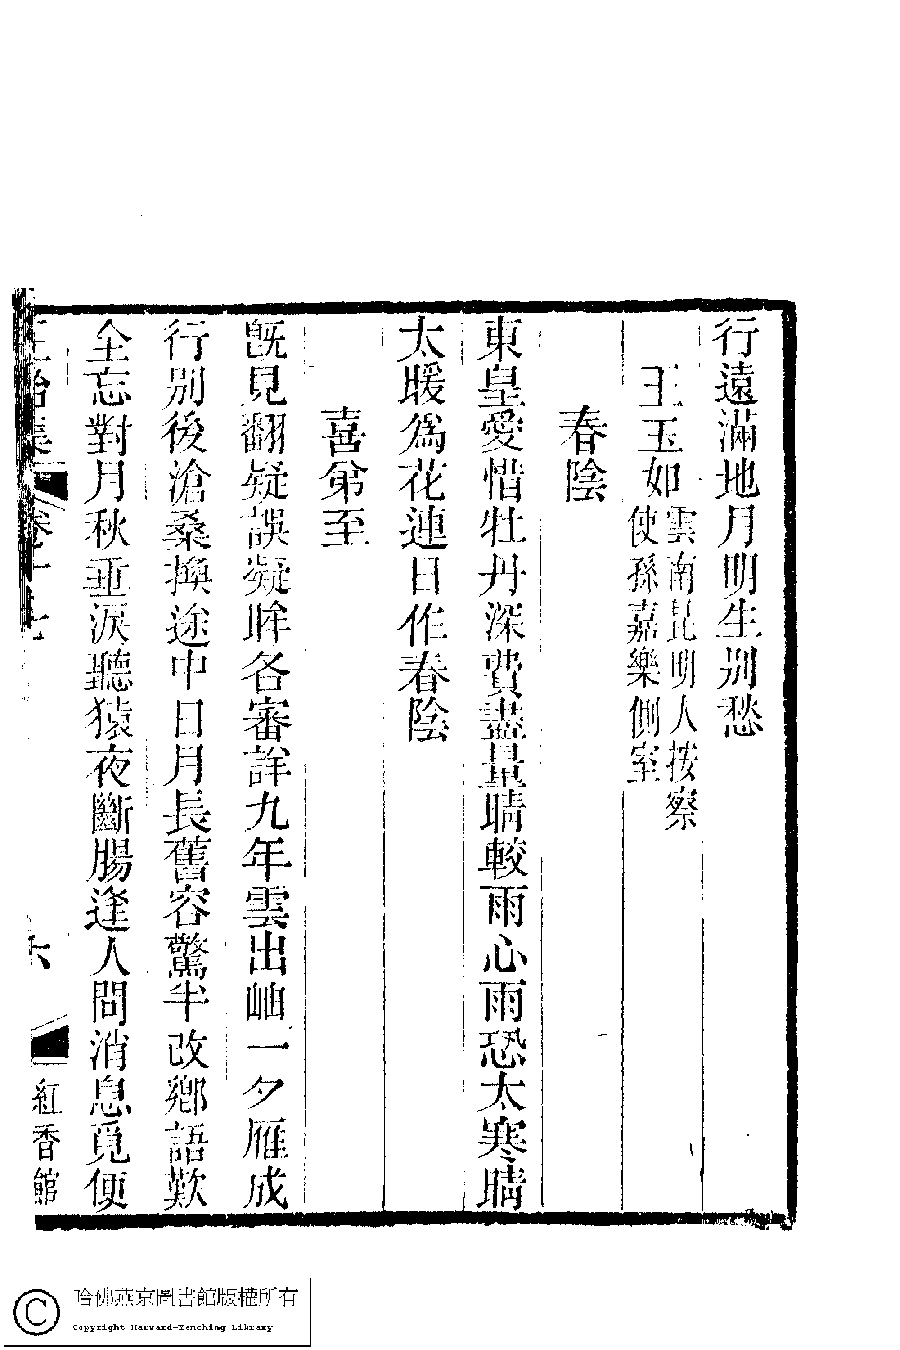 行遠滿地月明生別愁
王玉如
雲南昆明人按察
使孫嘉樂側室
春陰
東皇愛惜牡丹深費盡量晴較雨心雨恐太寒晴
太暖爲花連日作春陰
喜弟至
旣見翻疑誤凝眸各審詳九年雲出岫一夕雁成
行別後滄桑換途中日月長舊容驚半改鄉語歎
全忘對月秋垂淚聽猿夜斷腸逢人問消息覓便
正始集
卷十七
六
紅香館
哈佛燕京圖書館版權所有
Copyright Harvard-Yenching Library